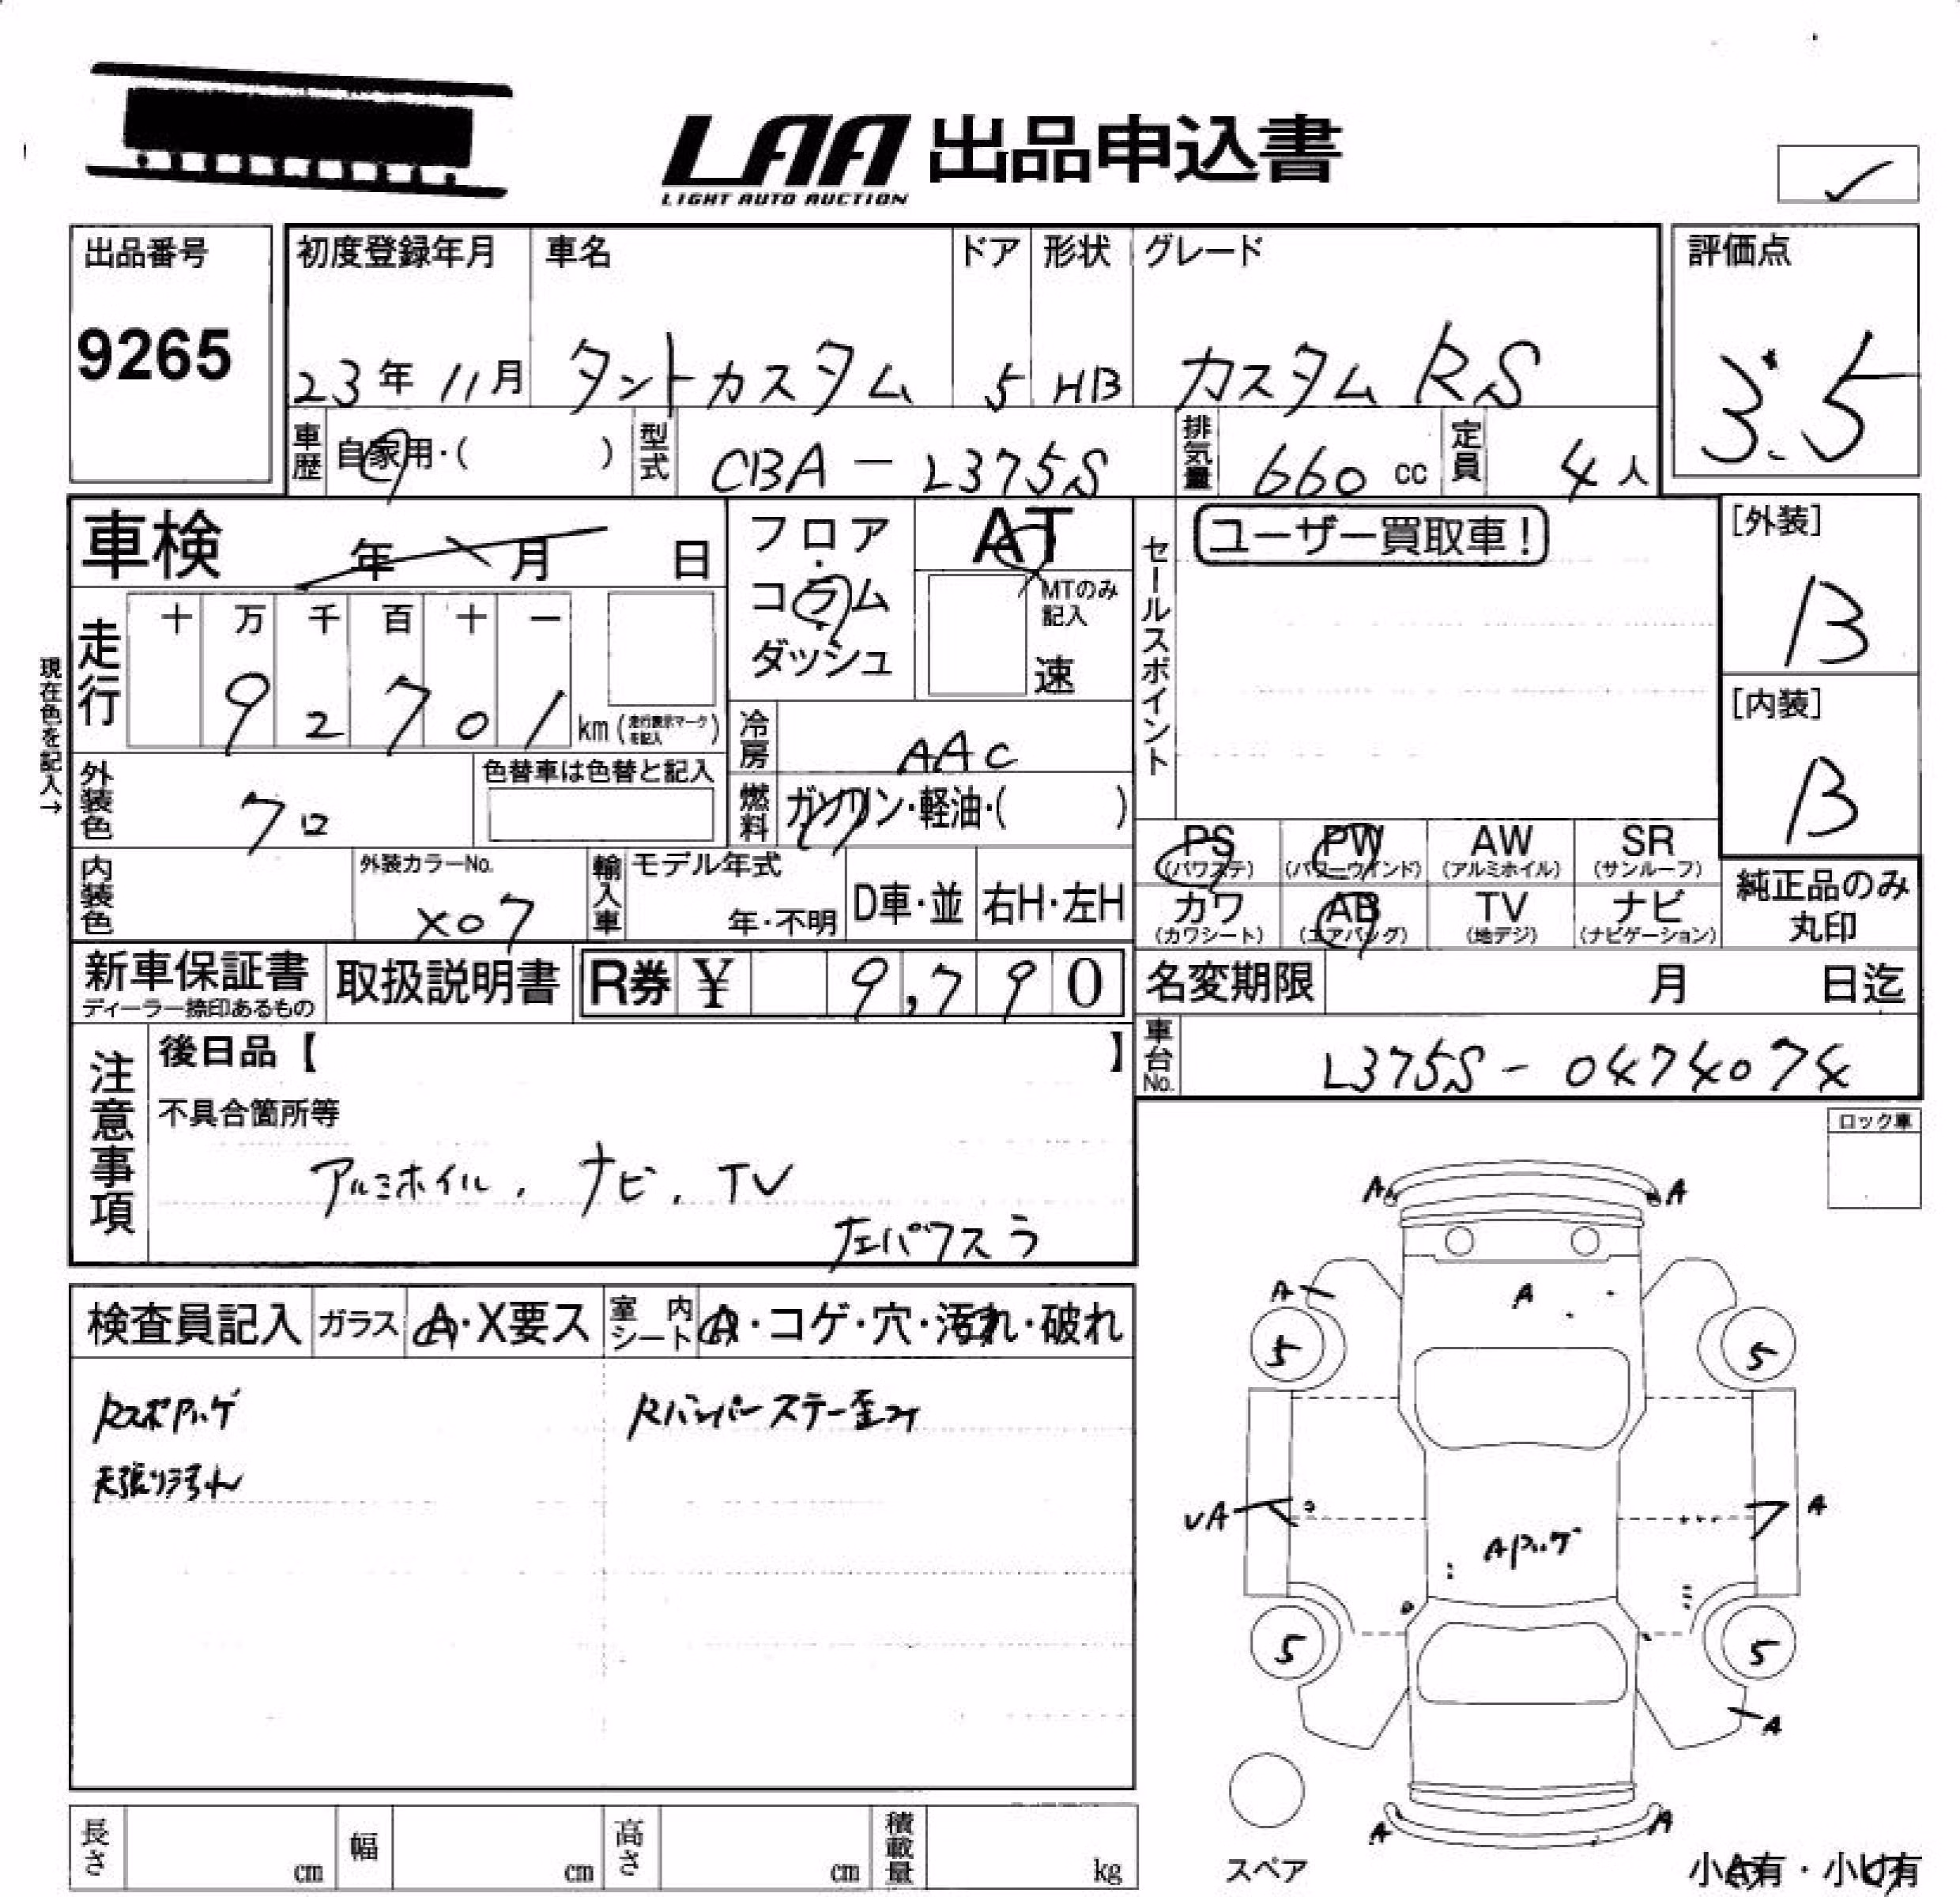 LAA 出品申込書
LIGHT AUTO AUCTION
出品番号
9265
初度登録年月 車名 ドア 形状 グレード
23年11月 タントカスタム 5 HB カスタム RS
評価点
3.5
車歴 自家用・( ) 型式 CBA-L375S 排気量 660 cc 定員 4人
車検 年 月 日
フロア・コラム・ダッシュ
AT
MTのみ記入
速
セールスポイント
ユーザー買取車!
[外装]
B
[内装]
B
現在色を記入→
走行 十 万 千 百 十 一
9 2 7 0 1 km (走行表示マークを記入)
冷房 AAC
外装色 クロ 色替車は色替と記入
燃料 ガソリン・軽油・( )
PS (パワステ) PW (パワーウインド) AW (アルミホイル) SR (サンルーフ)
カワ (カワシート) AB (エアバッグ) TV (地デジ) ナビ (ナビゲーション)
純正品のみ
丸印
内装色 外装カラーNo. X07 輸入車 モデル年式 年・不明 D車・並 右H・左H
新車保証書 ディーラー捺印あるもの 取扱説明書 R券 ¥ 9,790
名変期限 月 日迄
車台No. L375S-0474074
注意事項
後日品【 】
不具合箇所等
アルミホイル、ナビ、TV
左パワスラ
ロック車
検査員記入 ガラス A・X要ス 室内シート A・コゲ・穴・汚れ・破れ
RスポAハゲ
天張り汚れ
Rバンパーステー歪み
A A
A A
5 5
VA A
Aハゲ
5 5
A
A A
スペア
小A有・小U有
長さ cm 幅 cm 高さ cm 積載量 kg